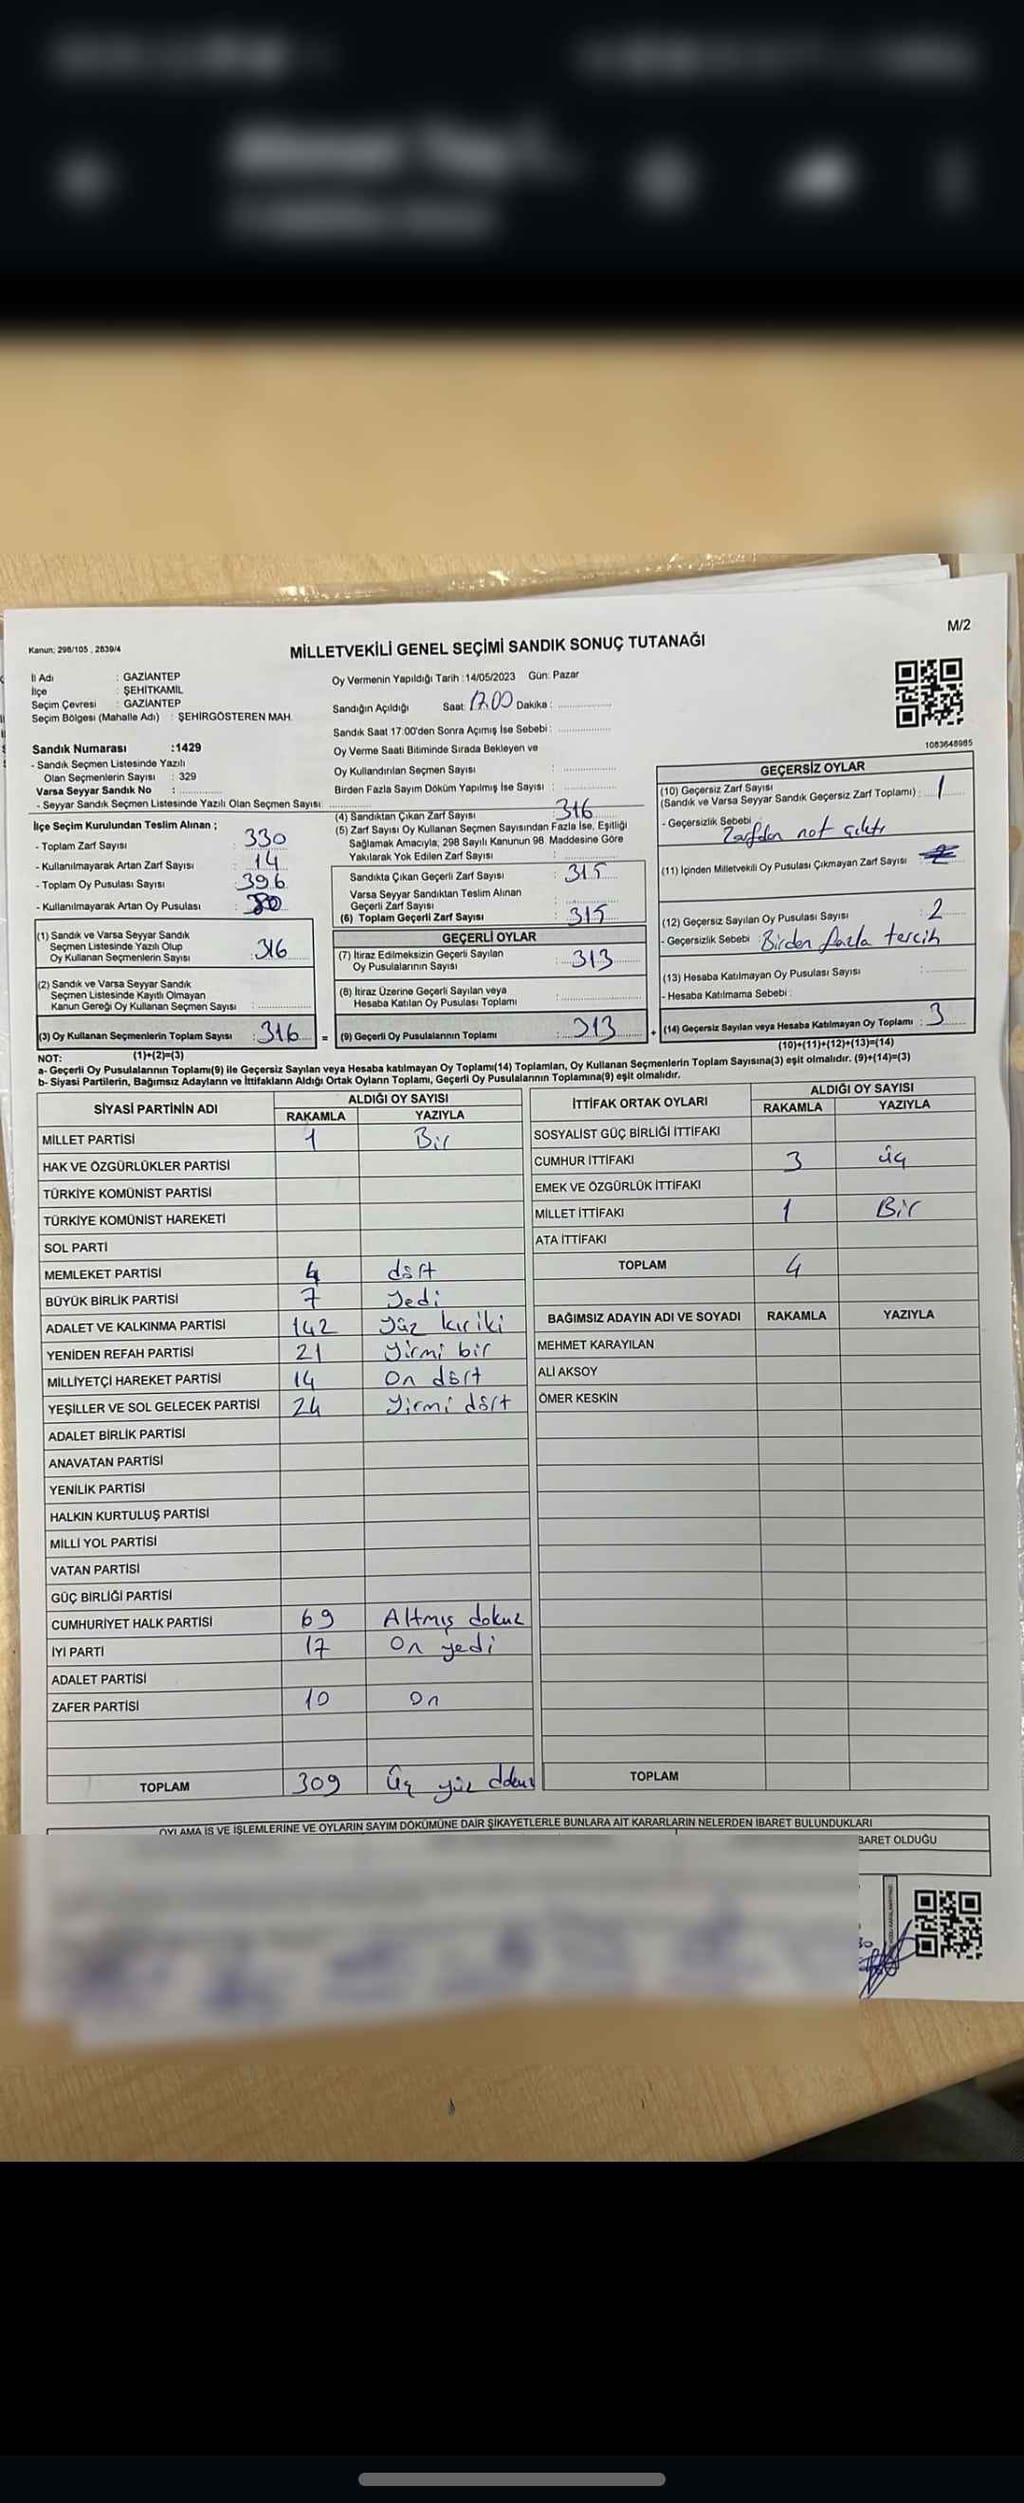 M/2
Kanun: 298/105 , 2839/4
MİLLETVEKİLİ GENEL SEÇİMİ SANDIK SONUÇ TUTANAĞI
İl Adı : GAZİANTEP
İlçe : ŞEHİTKAMİL
Seçim Çevresi : GAZİANTEP
Seçim Bölgesi (Mahalle Adı) : ŞEHİRGÖSTEREN MAH.
Sandık Numarası :1429
- Sandık Seçmen Listesinde Yazılı
Olan Seçmenlerin Sayısı : 329
Varsa Seyyar Sandık No :
- Seyyar Sandık Seçmen Listesinde Yazılı Olan Seçmen Sayısı:
Oy Vermenin Yapıldığı Tarih :14/05/2023 Gün: Pazar
Sandığın Açıldığı Saat: 17.00 Dakika :
Sandık Saat 17:00'den Sonra Açımış İse Sebebi :
Oy Verme Saati Bitiminde Sırada Bekleyen ve
Oy Kullandırılan Seçmen Sayısı :
Birden Fazla Sayım Döküm Yapılmış İse Sayısı :
1083648985
İlçe Seçim Kurulundan Teslim Alınan ;
- Toplam Zarf Sayısı : 330
- Kullanılmayarak Artan Zarf Sayısı : 14
- Toplam Oy Pusulası Sayısı : 396
- Kullanılmayarak Artan Oy Pusulası : 80
(1) Sandık ve Varsa Seyyar Sandık
Seçmen Listesinde Yazılı Olup
Oy Kullanan Seçmenlerin Sayısı : 316
(2) Sandık ve Varsa Seyyar Sandık
Seçmen Listesinde Kayıtlı Olmayan
Kanun Gereği Oy Kullanan Seçmen Sayısı :
(3) Oy Kullanan Seçmenlerin Toplam Sayısı : 316 =
(4) Sandıktan Çıkan Zarf Sayısı : 316
(5) Zarf Sayısı Oy Kullanan Seçmen Sayısından Fazla İse, Eşitliği
Sağlamak Amacıyla; 298 Sayılı Kanunun 98. Maddesine Göre
Yakılarak Yok Edilen Zarf Sayısı :
Sandıkta Çıkan Geçerli Zarf Sayısı : 315
Varsa Seyyar Sandıktan Teslim Alınan
Geçerli Zarf Sayısı :
(6) Toplam Geçerli Zarf Sayısı : 315
GEÇERLİ OYLAR
(7) İtiraz Edilmeksizin Geçerli Sayılan
Oy Pusulalarının Sayısı : 313
(8) İtiraz Üzerine Geçerli Sayılan veya
Hesaba Katılan Oy Pusulası Toplamı :
(9) Geçerli Oy Pusulalarının Toplamı : 313 +
GEÇERSİZ OYLAR
(10) Geçersiz Zarf Sayısı
(Sandık ve Varsa Seyyar Sandık Geçersiz Zarf Toplamı) : 1
- Geçersizlik Sebebi : Zarfdan not çıktı
(11) İçinden Milletvekili Oy Pusulası Çıkmayan Zarf Sayısı :
(12) Geçersiz Sayılan Oy Pusulası Sayısı : 2
- Geçersizlik Sebebi : Birden fazla tercih
(13) Hesaba Katılmayan Oy Pusulası Sayısı :
- Hesaba Katılmama Sebebi :
(14) Geçersiz Sayılan veya Hesaba Katılmayan Oy Toplamı : 3
NOT: (1)+(2)=(3)
(10)+(11)+(12)+(13)=(14)
a- Geçerli Oy Pusulalarının Toplamı(9) ile Geçersiz Sayılan veya Hesaba katılmayan Oy Toplamı(14) Toplamları, Oy Kullanan Seçmenlerin Toplam Sayısına(3) eşit olmalıdır. (9)+(14)=(3)
b- Siyasi Partilerin, Bağımsız Adayların ve İttifakların Aldığı Ortak Oyların Toplamı, Geçerli Oy Pusulalarının Toplamına(9) eşit olmalıdır.
SİYASİ PARTİNİN ADI ALDIĞI OY SAYISI
RAKAMLA YAZIYLA
MİLLET PARTİSİ 1 Bir
HAK VE ÖZGÜRLÜKLER PARTİSİ
TÜRKİYE KOMÜNİST PARTİSİ
TÜRKİYE KOMÜNİST HAREKETİ
SOL PARTİ
MEMLEKET PARTİSİ 4 dört
BÜYÜK BİRLİK PARTİSİ 7 Yedi
ADALET VE KALKINMA PARTİSİ 142 Yüz kırıki
YENİDEN REFAH PARTİSİ 21 Yirmi bir
MİLLİYETÇİ HAREKET PARTİSİ 14 On dört
YEŞİLLER VE SOL GELECEK PARTİSİ 24 Yirmi dört
ADALET BİRLİK PARTİSİ
ANAVATAN PARTİSİ
YENİLİK PARTİSİ
HALKIN KURTULUŞ PARTİSİ
MİLLİ YOL PARTİSİ
VATAN PARTİSİ
GÜÇ BİRLİĞİ PARTİSİ
CUMHURİYET HALK PARTİSİ 69 Altmış dokuz
İYİ PARTİ 17 On yedi
ADALET PARTİSİ
ZAFER PARTİSİ 10 On
TOPLAM 309 Üç yüz
İTTİFAK ORTAK OYLARI ALDIĞI OY SAYISI
RAKAMLA YAZIYLA
SOSYALİST GÜÇ BİRLİĞİ İTTİFAKI
CUMHUR İTTİFAKI 3 üç
EMEK VE ÖZGÜRLÜK İTTİFAKI
MİLLET İTTİFAKI 1 Bir
ATA İTTİFAKI
TOPLAM 4
BAĞIMSIZ ADAYIN ADI VE SOYADI RAKAMLA YAZIYLA
MEHMET KARAYILAN
ALİ AKSOY
ÖMER KESKİN
TOPLAM
OYLAMA İŞ VE İŞLEMLERİNE VE OYLARIN SAYIM DÖKÜMÜNE DAİR ŞİKAYETLERLE BUNLARA AİT KARARLARIN NELERDEN İBARET BULUNDUKLARI
BARET OLDUĞU